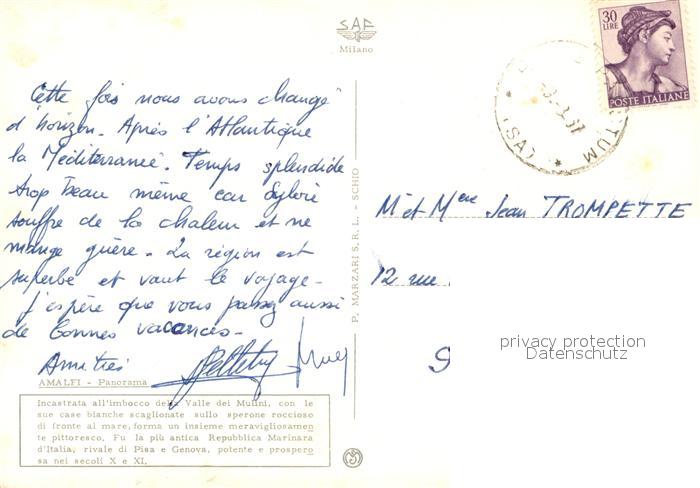 SAF
Milano
30
LIRE
POSTE ITALIANE
TUM
(SA)
Cette fois nous avons changé
d'horizon. Après l'Atlantique
la Méditerranée. Temps splendide
trop beau même car
souffre de la chaleur et ne
mange guère. La région est
superbe et vaut le voyage.
j'espère que vous passez aussi
de bonnes vacances.
Amitiés
P. MARZARI S.R.L. - SCHIO
M et Mme Jean TROMPETTE
12 rue
privacy protection
Datenschutz
AMALFI - Panorama
Incastrata all'imbocco della Valle dei Mulini, con le
sue case bianche scaglionate sullo sperone roccioso
di fronte al mare, forma un insieme meravigliosamen
te pittoresco. Fu la più antica Repubblica Marinara
d'Italia, rivale di Pisa e Genova, potente e prospero
sa nei secoli X e XI.